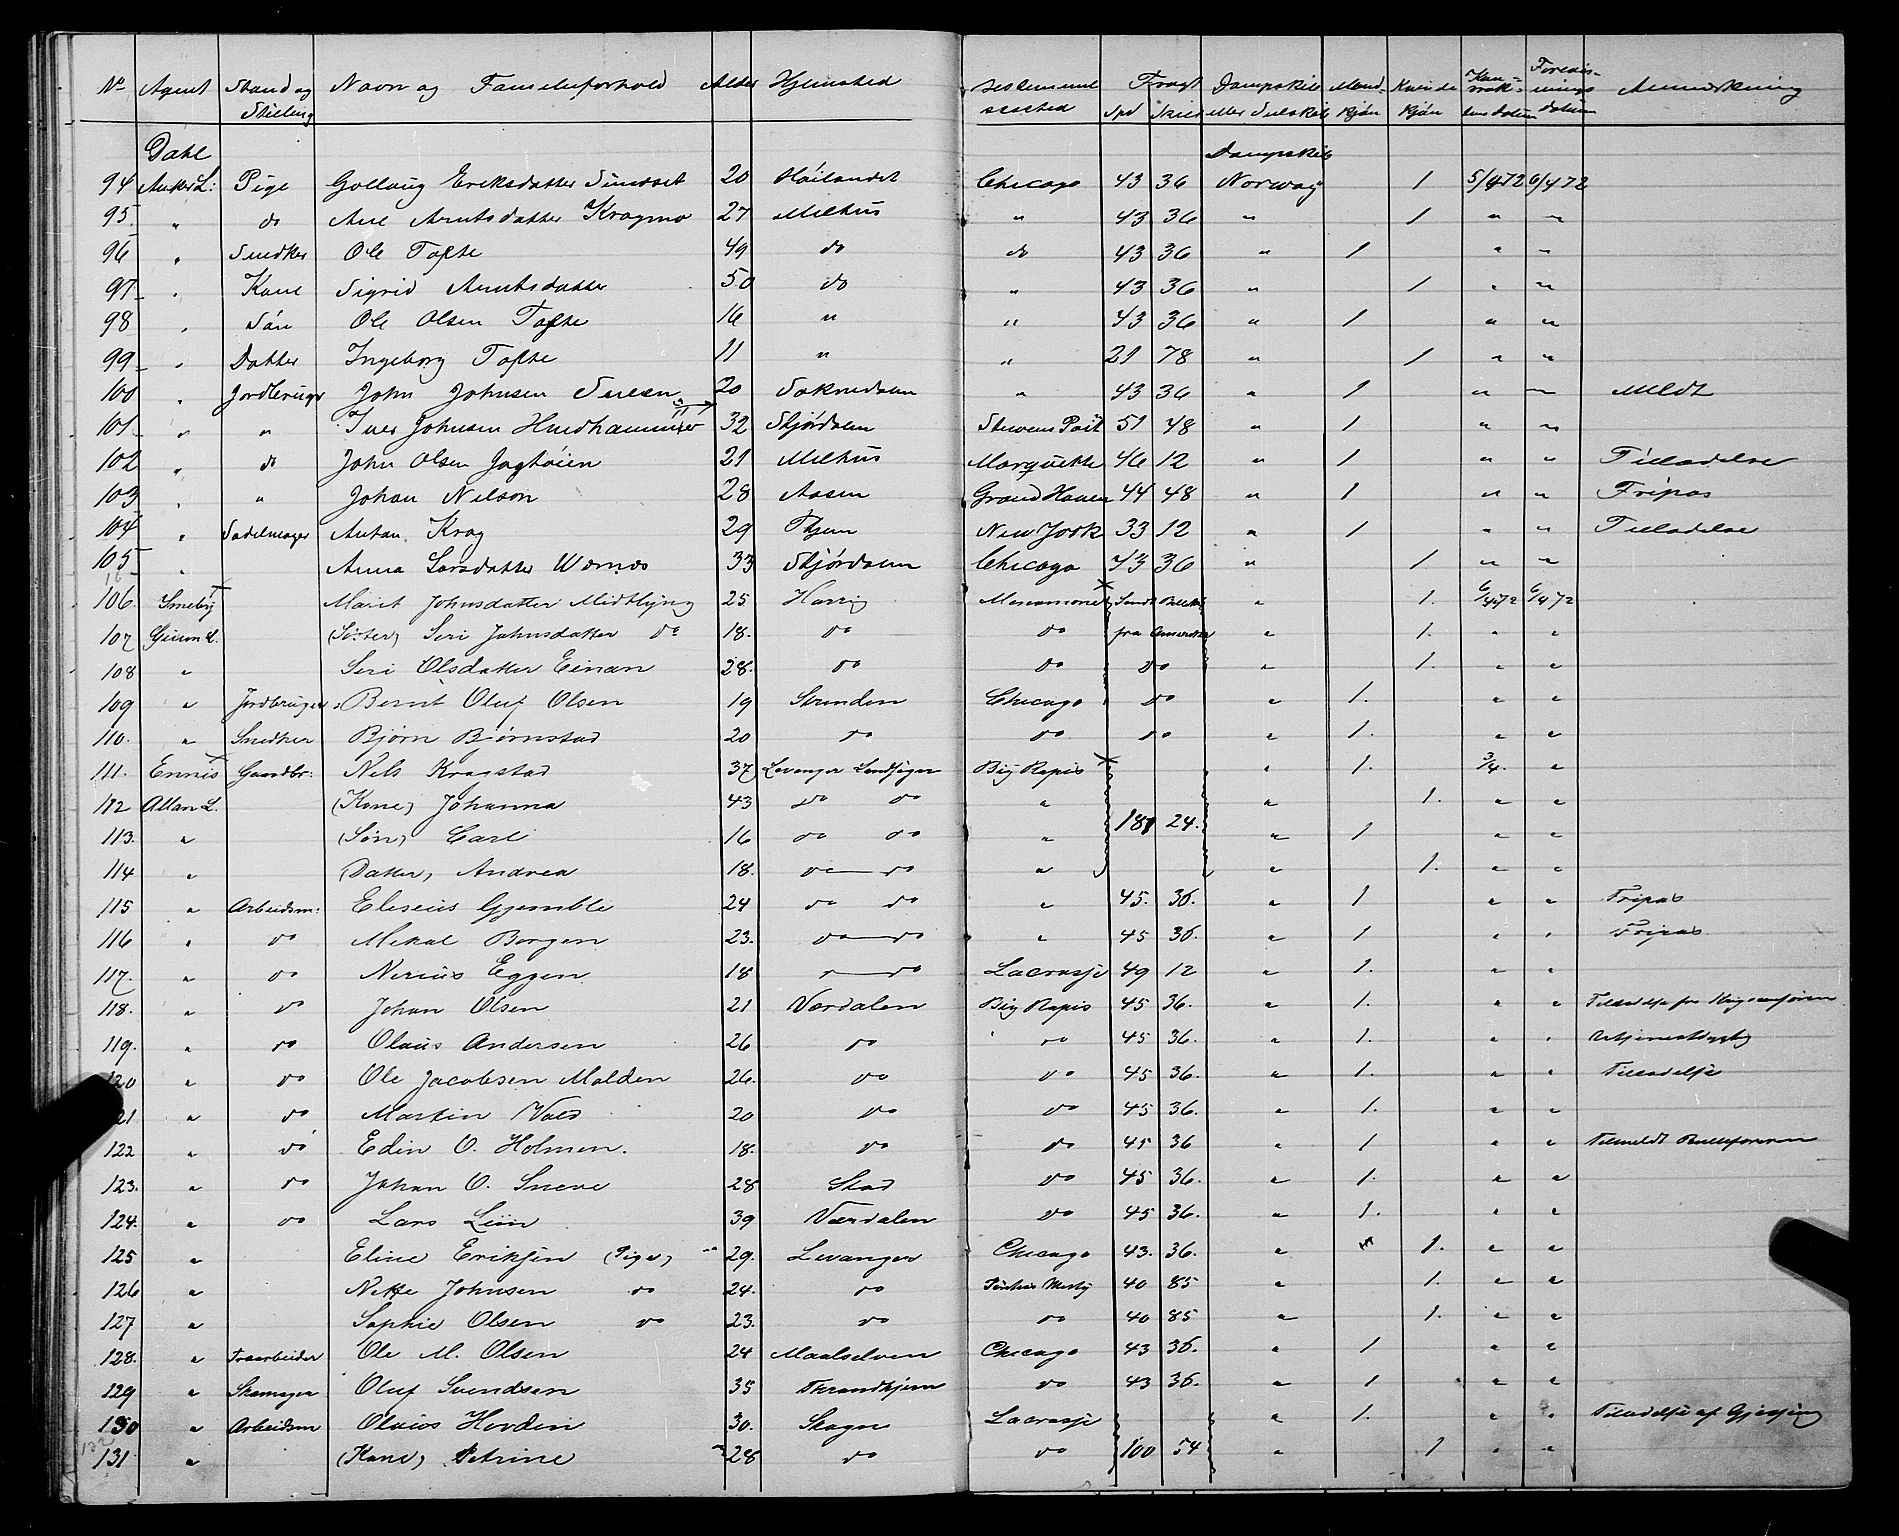 No Agent Stand og Stilling Navn og Familieforhold Alder Hjemsted Bestemmelsessted Fragt Spd Skill Dampskib eller Seilskib Mandkjøn Kvindekjøn Kontraktens datum Forevisnings datum Anmærkning
Dahl Dampskib
94 Anker L: Pige Gollaug Eriksdatter Sundset 20 Höilandet Chicago 43 36 Norway 1 5/4 72 6/4 72
95 " do Ane Arntsdatter Kragmo 27 Melhus " 43 36 " 1 " "
96 " Snedker Ole Tofte 49 do do 43 36 " 1 " "
97 " Kone Sigrid Arntsdatter 50 do " 43 36 " 1 " "
98 " Sön Ole Olsen Tofte 16 " " 43 36 " 1 " "
99 " Datter Ingeborg Tofte 11 " " 21 78 " 1 " "
100 " Jordbruger John Johnsen 20 Soknedalen " 43 36 " 1 " " Meldt
101 " " Iver Johnsen Hindhammer 32 Stjørdalen Stevens Point 51 48 " 1 " "
102 " do John Olsen Jagtøien 21 Melhus Marquette 46 12 " 1 " " Tilladelse
103 " " Johan Nilson 28 Aasen Grand Haven 44 48 " 1 " " Fripas
104 " Sadelmager Anton Krog 29 Thjem New York 33 12 " 1 " " Tilladelse
105 " Anna Larsdatter Wærnes 33 Stjørdalen Chicago 43 36 " 1 " "
106. Smeby Marit Johnsdatter Midtlyng 25 Horrig Menomonee Sendt Billet " 1. 6/4 72 6/4 72
107 Guion L. (Søster) Seri Johnsdatter do 18. do do fra Amerika " 1. " "
108 " Seri Olsdatter Einan 28. do do do " 1. " "
109 " Jordbruger Bernt Oluf Olsen 19 Strinden Chicago do " 1. " "
110. " Snedker Bjørn Bjørnstad 20 do do do " 1. " "
111. Ennis Gaardbr: Nils Kragstad 37 Levanger Landsogn Big Rapis " 1. 3/4. "
112 Allan L. (Kone) Johanna 43 do do " " 1. " "
113. " (Søn) Carl 16 do do " 181 24. " 1 " "
114 " (Datter) Andrea 18. do do " " 1. " "
115 " Arbeidsm: Eliseus Gjemble 24 do do " 45. 36. " 1 " " Fripas
116 " do Mekal Borgen 23. do do " 45 36. " 1 " " Fripas
117. " do Nerius Eggen 18 do Lacrosje 49 12 " 1. " "
118. " do Johan Olsen 21 Værdalen Big Rapis 45 36. " 1. " " Tilladelse fra
119. " do Olaus Andersen 26 do do 45 36. " 1. " "
120 " do Ole Jacobsen Molden 26. do do 45 36. " 1. " " Tilladelse
121 " do Martin Vold 20 do do 45 36. " 1. " "
122 " do Edin O. Holmen. 18. do do 45 36 " 1 " " Tilmeldt Rulleføreren
123. " do Johan O. Sneve 28 Stod do 45 36. " 1. " "
124. " do Lars Liin 39 Værdalen do 45 36. " 1. " "
125 " Eline Eriksen (Pige) 29. Levanger Chicago 43. 36. " 1. " "
126 " Nette Johnsen do 24. do 40 85 " 1. " "
127 " Sophie Olsen do 23. do do 40 85 " 1. " "
128. " Træarbeider Ole M. Olsen 24 Maalselven Chicago 43 36. " 1 " "
129 " Skomager Oluf Svendsen 35 Throndhjem do 43 36. " 1 " "
130 " Arbeidsm Olaus Hovden 30. Skogn Lacrosje " 1. " " Tilladelse af
131 " (Kone) Petrine 28 do do 100 54 " 1 " "